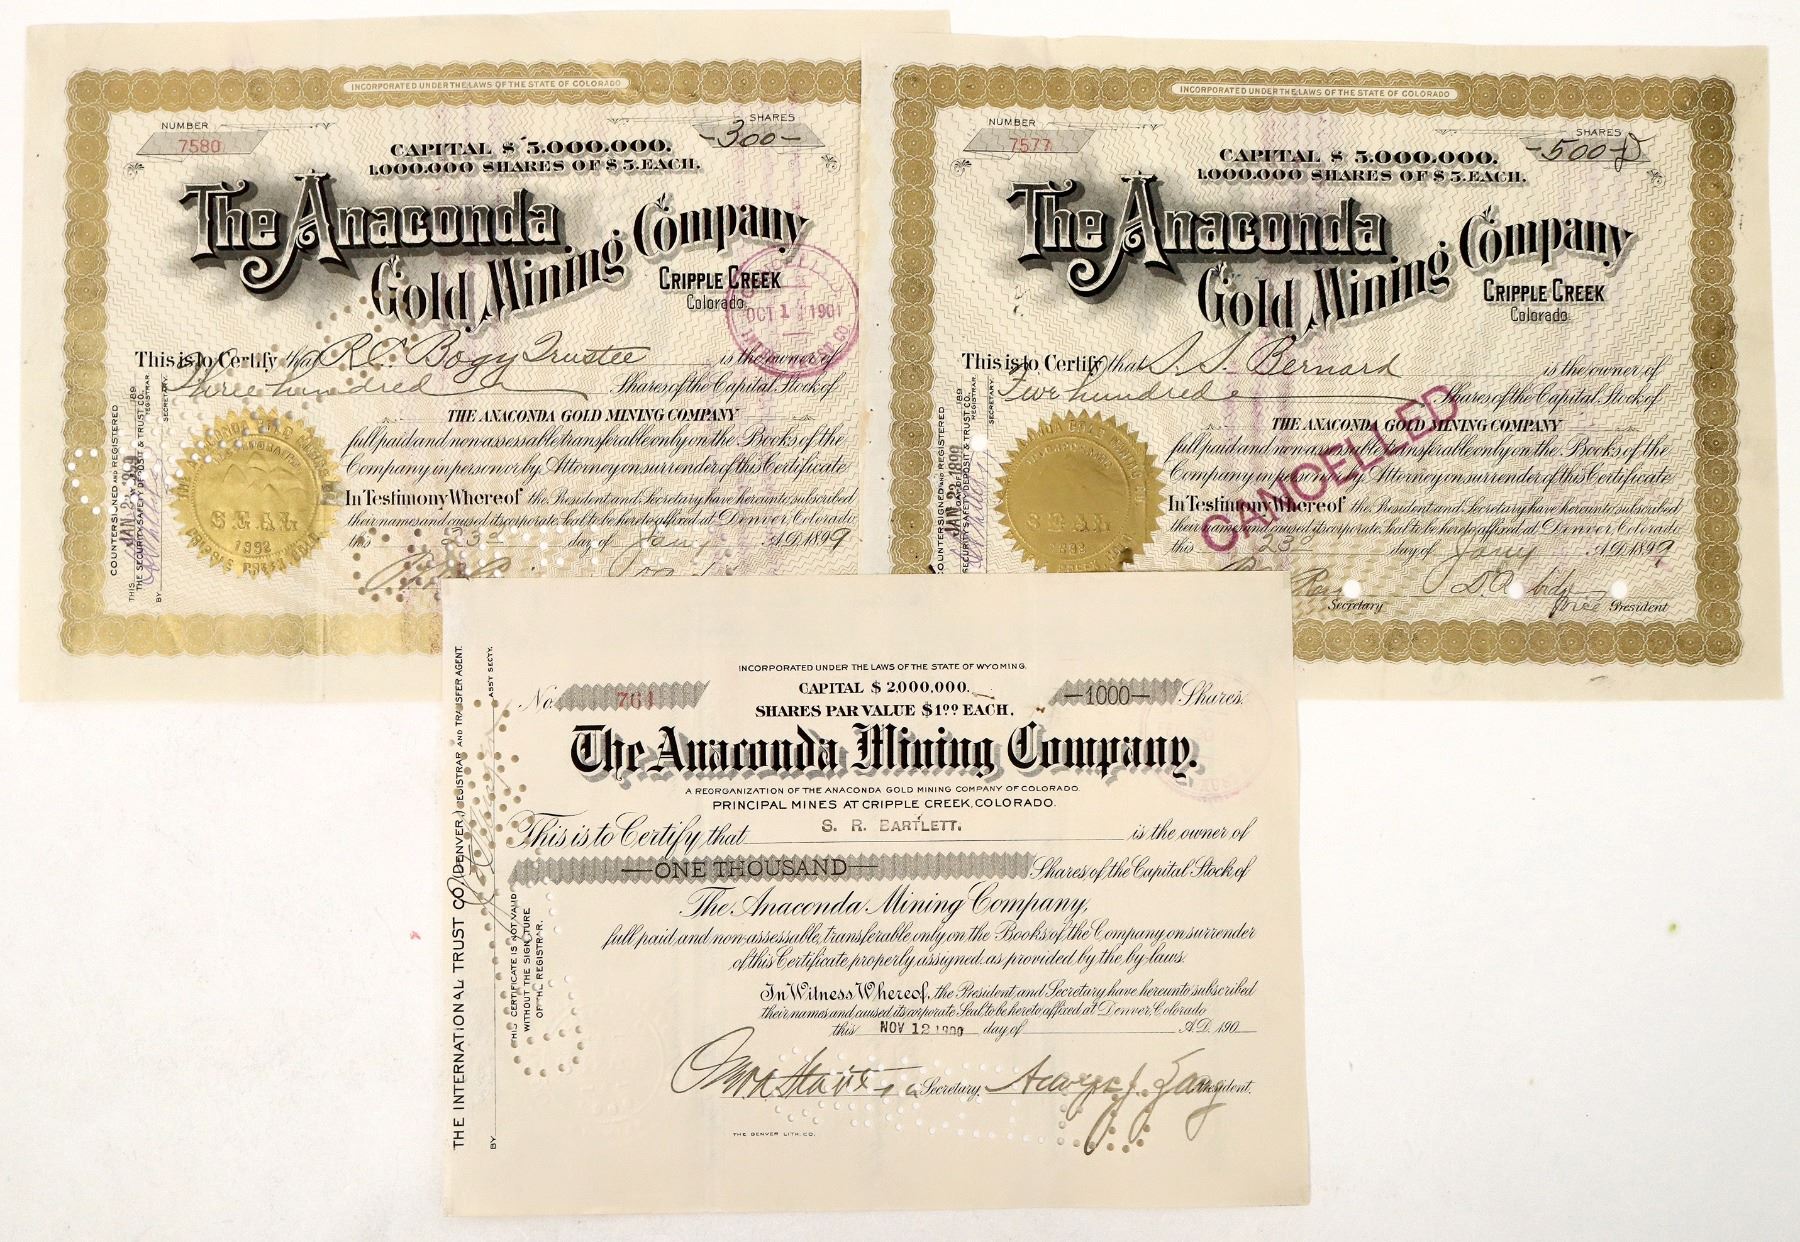 INCORPORATED UNDER THE LAWS OF THE STATE OF COLORADO
NUMBER
7580
SHARES
-300-
CAPITAL $ 5.000.000.
1.000.000 SHARES OF $ 5. EACH.
The Anaconda
Gold Mining Company
CRIPPLE CREEK
Colorado.
OCT 1 1901
This is to Certify that R.C. Bogy Trustee is the owner of
Three hundred Shares of the Capital Stock of
THE ANACONDA GOLD MINING COMPANY
full paid and non assessable transferable only on the Books of the
Company in person or by Attorney on surrender of this Certificate
In Testimony Whereof the President and Secretary have hereunto subscribed
their names and caused its corporate Seal to be hereto affixed at Denver, Colorado
this 23d day of Jany A.D. 1899
SEAL
1892
COUNTERSIGNED AND REGISTERED
THIS JAN 23 1899 189
THE SECURITY SAFETY DEPOSIT & TRUST CO. REGISTRAR.
BY SECRETARY.
INCORPORATED UNDER THE LAWS OF THE STATE OF COLORADO
NUMBER
7577
SHARES
-500-
CAPITAL $ 5.000.000.
1.000.000 SHARES OF $ 5. EACH.
The Anaconda
Gold Mining Company
CRIPPLE CREEK
Colorado.
This is to Certify that S. S. Bernard is the owner of
Five hundred Shares of the Capital Stock of
THE ANACONDA GOLD MINING COMPANY
full paid and non assessable transferable only on the Books of the
Company in person or by Attorney on surrender of this Certificate
In Testimony Whereof the President and Secretary have hereunto subscribed
their names and caused its corporate Seal to be hereto affixed at Denver, Colorado
this 23d day of Jany A.D. 1899
Secretary Vice President
CANCELLED
SEAL
COUNTERSIGNED AND REGISTERED
JAN 23 1899 189
SECURITY SAFETY DEPOSIT & TRUST CO. REGISTRAR.
SECRETARY.
INCORPORATED UNDER THE LAWS OF THE STATE OF WYOMING.
CAPITAL $ 2,000,000.
SHARES PAR VALUE $1.00 EACH.
No. 764
—1000— Shares.
The Anaconda Mining Company.
A REORGANIZATION OF THE ANACONDA GOLD MINING COMPANY OF COLORADO.
PRINCIPAL MINES AT CRIPPLE CREEK, COLORADO.
This is to Certify that S. R. BARTLETT. is the owner of
—ONE THOUSAND— Shares of the Capital Stock of
The Anaconda Mining Company,
full paid and non-assessable, transferable only on the Books of the Company, on surrender
of this Certificate properly assigned, as provided by the by-laws.
In Witness Whereof, the President and Secretary have hereunto subscribed
their names and caused its corporate Seal, to be hereto affixed at Denver, Colorado
this NOV 12 1900 day of A.D. 190
Secretary. President.
THE DENVER LITH. CO.
THE INTERNATIONAL TRUST CO. (DENVER,) REGISTRAR AND TRANSFER AGENT.
BY ASST SECTY.
THIS CERTIFICATE IS NOT VALID
WITHOUT THE SIGNATURE
OF THE REGISTRAR.